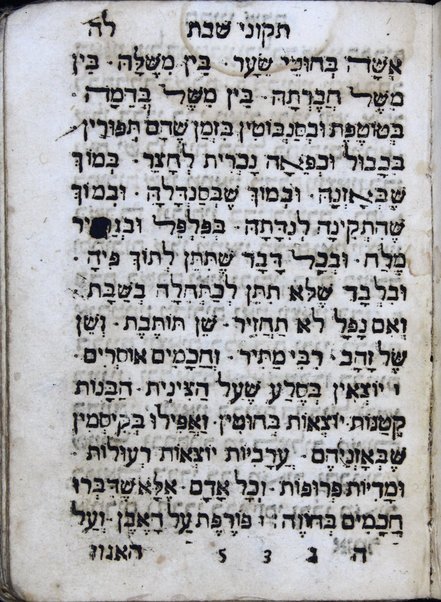 תקוני שבת לה
אִשָּׁה בְּחוּטֵי שֵׂעָר · בֵּין מִשֶּׁלָּהּ · בֵּין
מִשֶּׁל חֲבֶרְתָּהּ · בֵּין מִשֶּׁל בְּהֵמָה ·
בְּטוֹטֶפֶת וּבְסַנְבּוּטִין בִּזְמַן שֶׁהֵם תְּפוּרִין
בְּכָבוּל וּבְפֵאָה נָכְרִית לֶחָצֵר · בְּמוֹךְ
שֶׁבְּאָזְנָהּ · וּבְמוֹךְ שֶׁבְּסַנְדָּלָהּ · וּבְמוֹךְ
שֶׁהִתְקִינָה לְנִדָּתָהּ · בְּפִלְפֵּל וּבְגַרְגִּיר
מֶלַח · וּבְכָל דָּבָר שֶׁתִּתֵּן לְתוֹךְ פִּיהָ ·
וּבִלְבַד שֶׁלֹּא תִתֵּן לְכַתְּחִלָּה בְּשַׁבָּת
וְאִם נָפַל לֹא תַחֲזִיר · שֵׁן תּוֹתֶבֶת · וְשֵׁן
שֶׁל זָהָב · רִבִּי מַתִּיר · וַחֲכָמִים אוֹסְרִים ·
ו יוֹצְאִין בְּסֶלַע שֶׁעַל הַצִּינִית · הַבָּנוֹת
קְטַנּוֹת יוֹצְאוֹת בְּחוּטִין · וַאֲפִילוּ בְּקִיסְמִין
שֶׁבְּאָזְנֵיהֶם · עַרְבִיּוֹת יוֹצְאוֹת רְעוּלוֹת ·
וּמָדִיּוֹת פְּרוּפוֹת · וְכָל אָדָם · אֶלָּא שֶׁדִּבְּרוּ
חֲכָמִים בַּהֹוֶה : ז פּוֹרֶפֶת עַל הָאֶבֶן · וְעַל
ה ג 3 5 האגוז